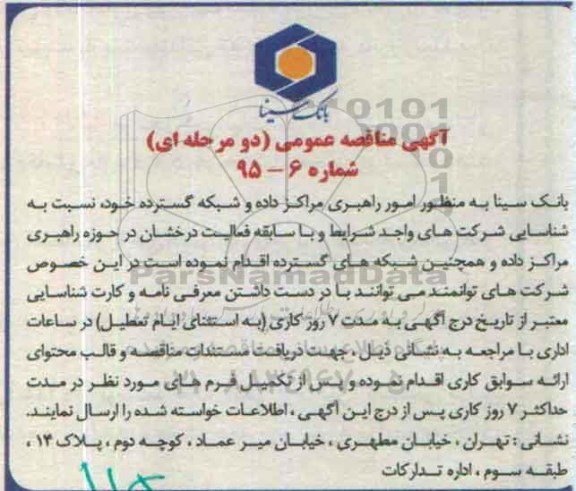 بانک سینا
آگهی مناقصه عمومی (دو مرحله ای)
شماره ۶ – ۹۵
بانک سینا به منظور امور راهبری مراکز داده و شبکه گسترده خود، نسبت به
شناسایی شرکت های واجد شرایط و با سابقه فعالیت درخشان در حوزه راهبری
مراکز داده و همچنین شبکه های گسترده اقدام نموده است در این خصوص
شرکت های توانمند می توانند با در دست داشتن معرفی نامه و کارت شناسایی
معتبر از تاریخ درج آگهی به مدت ۷ روز کاری (به استثنای ایام تعطیل) در ساعات
اداری با مراجعه به نشانی ذیل، جهت دریافت مستندات مناقصه و قالب محتوای
ارائه سوابق کاری اقدام نموده و پس از تکمیل فرم های مورد نظر در مدت
حداکثر ۷ روز کاری پس از درج این آگهی، اطلاعات خواسته شده را ارسال نمایند.
نشانی: تهران، خیابان مطهری، خیابان میر عماد، کوچه دوم، پلاک ۱۴،
طبقه سوم، اداره تدارکات
ParsNamadData